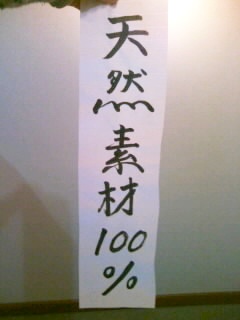 天然素材100%